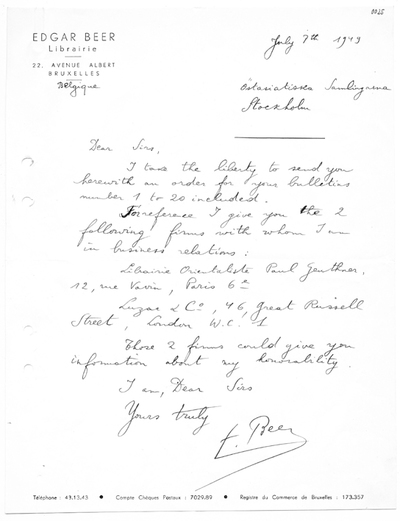 0025
EDGAR BEER
Librairie
22, AVENUE ALBERT
BRUXELLES
Belgique
July 7th 1949
Östasiatiska Samlingarna
Stockholm
Dear Sirs,
I take the liberty to send you
herewith an order for your bulletins
number 1 to 20 included.
For reference I give you the 2
following firms with whom I am
in business relations :
Librairie Orientaliste Paul Geuthner,
12, rue Vavin, Paris 6e
Luzac & Co, 46, Great Russell
Street, London W.C. 1
Those 2 firms could give you
information about my honorability.
I am, Dear Sirs
Yours truly
E. Beer
Téléphone : 43.13.43 • Compte Chèques Postaux : 7029.89 • Registre du Commerce de Bruxelles : 173.357